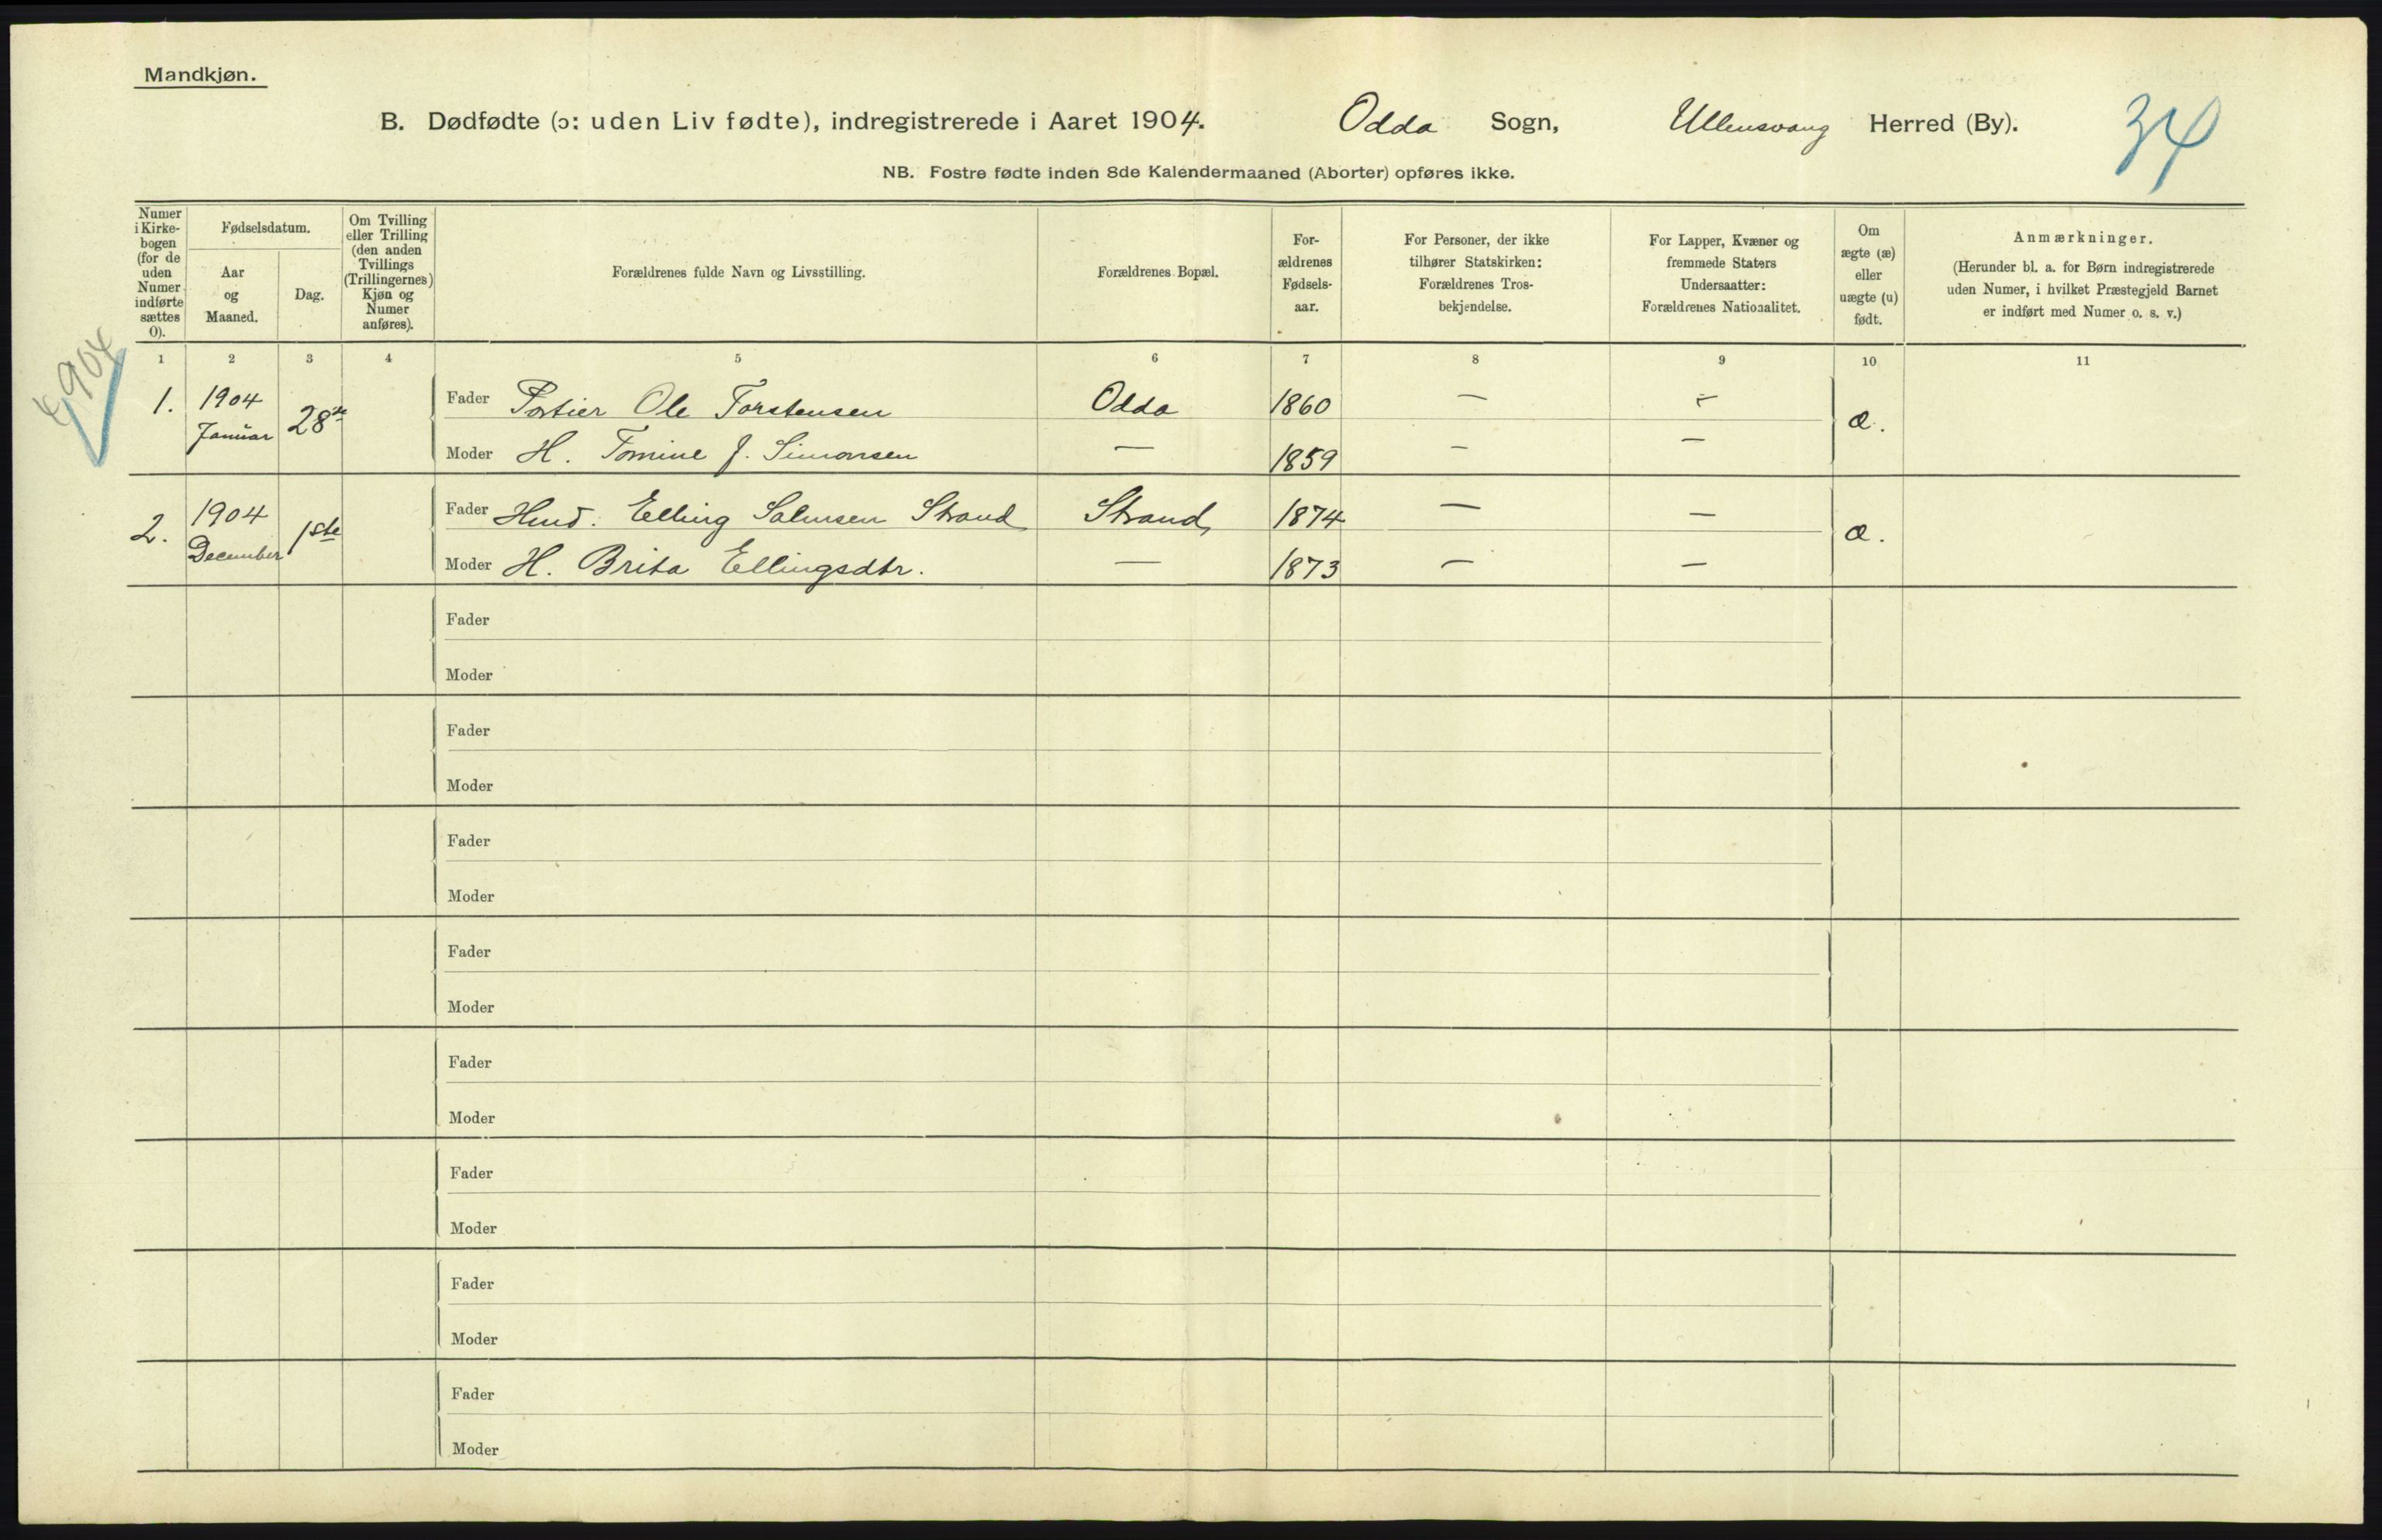 Mandkjøn.
B. Dødfødte (ɔ: uden Liv fødte), indregistrerede i Aaret 1904. Odda Sogn, Ullensvang Herred (By).
34
NB. Fostre fødte inden 8de Kalendermaaned (Aborter) opføres ikke.
Numer i Kirke-bogen (for de uden Numer indførte sættes 0).
Fødselsdatum.
Aar og Maaned.
Dag.
Om Tvilling eller Trilling (den anden Tvillings (Trillingernes) Kjøn og Numer anføres).
Forældrenes fulde Navn og Livsstilling.
Forældrenes Bopæl.
For-ældrenes Fødsels-aar.
For Personer, der ikke tilhører Statskirken: Forældrenes Tros-bekjendelse.
For Lapper, Kvæner og fremmede Staters Undersaatter: Forældrenes Nationalitet.
Om ægte (æ) eller uægte (u) født.
Anmærkninger.
(Herunder bl. a. for Børn indregistrerede uden Numer, i hvilket Præstegjeld Barnet er indført med Numer o. s. v.)
1 2 3 4 5 6 7 8 9 10 11
1904
1. 1904 Januar 28de Fader Portier Ole Torstensen Odda 1860 — — æ.
Moder H. Tomine J. Simonsen — 1859 — —
2. 1904 December 1ste Fader Husd. Elling Salmsen Strand Strand, 1874 — — æ.
Moder H. Brita Ellingsdtr. — 1873 — —
Fader
Moder
Fader
Moder
Fader
Moder
Fader
Moder
Fader
Moder
Fader
Moder
Fader
Moder
Fader
Moder